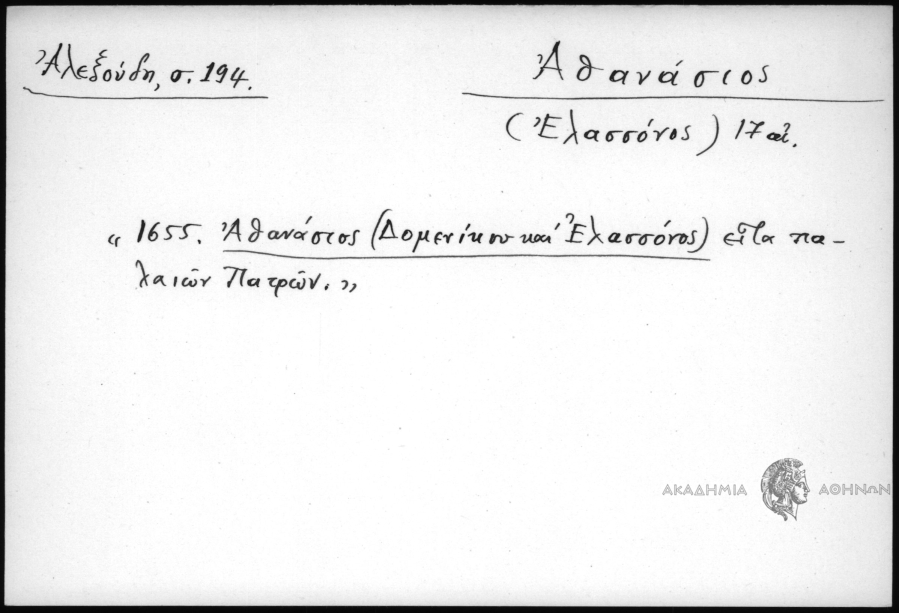 Ἀλεξούδη, σ. 194.
Ἀθανάσιος
(Ἐλασσόνος) 17 αἰ.
« 1655. Ἀθανάσιος (Δομενίκου καὶ Ἐλασσόνος) εἶτα πα-
λαιῶν Πατρῶν. »
ΑΚΑΔΗΜΙΑ ΑΘΗΝΩΝ